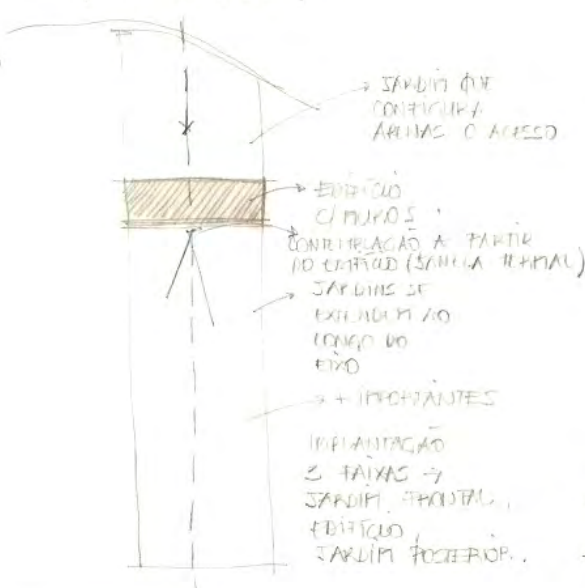 JARDIM QUE
CONFIGURA
APENAS O ACESSO
EDIFÍCIO
C/ MUROS
CONTEMPLAÇÃO A PARTIR
DO EDIFÍCIO (JANELA TERMAL)
JARDINS SE
EXTENDEM AO
LONGO DO
EIXO
+ IMPORTANTES
IMPLANTAÇÃO
3 FAIXAS →
JARDIM FRONTAL,
EDIFÍCIO,
JARDIM POSTERIOR.